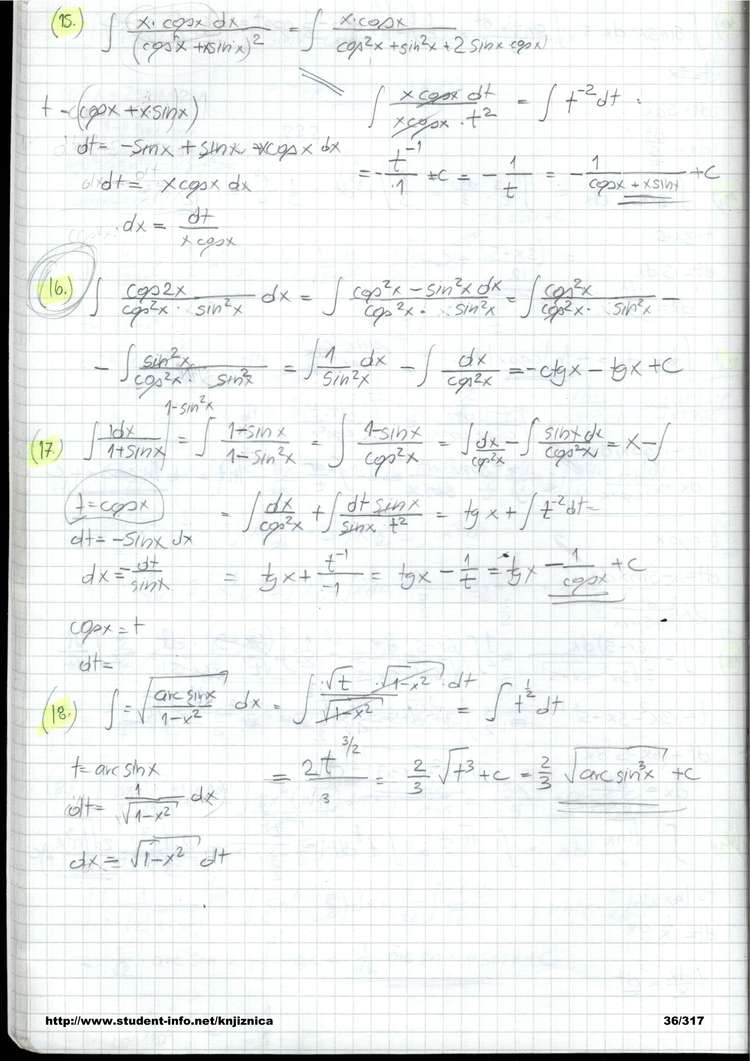 15. ∫ x·cosx dx / (cosx + xsinx)² = ∫ x·cosx / cos²x + sin²x + 2 sinx cosx
t = (cosx + x·sinx)
dt = -sinx + sinx + xcosx dx
dt = xcosx dx
dx = dt / xcosx
∫ xcosx dt / xcosx · t² = ∫ t⁻² dt =
= - t⁻¹ / 1 + c = - 1/t = - 1 / cosx + xsinx + C
16. ∫ cos2x / cos²x · sin²x dx = ∫ cos²x - sin²x dx / cos²x · sin²x = ∫ cos²x / cos²x · sin²x -
- ∫ sin²x / cos²x · sin²x = ∫ 1 / sin²x dx - ∫ dx / cos²x = -ctgx - tgx + C
1-sin²x
17. ∫ 1dx / 1+sinx = ∫ 1-sinx / 1-sin²x = ∫ 1-sinx / cos²x = ∫ dx / cos²x - ∫ sinx dx / cos²x = x - ∫
t = cosx
dt = -sinx dx
dx = - dt / sinx
= ∫ dx / cos²x + ∫ dt sinx / sinx t² = tgx + ∫ t⁻² dt =
= tgx + t⁻¹ / -1 = tgx - 1/t = tgx - 1 / cosx + C
cosx = t
dt =
18. ∫ = √(arc sinx / 1-x²) dx = ∫ √t · √(1-x²) / √(1-x²) · dt = ∫ t^½ dt
t = arc sinx
dt = 1 / √(1-x²) dx
dx = √(1-x²) dt
= 2t^3/2 / 3 = 2/3 √t³ + c = 2/3 √(arc sin³x) + C
http://www.student-info.net/knjiznica
36/317